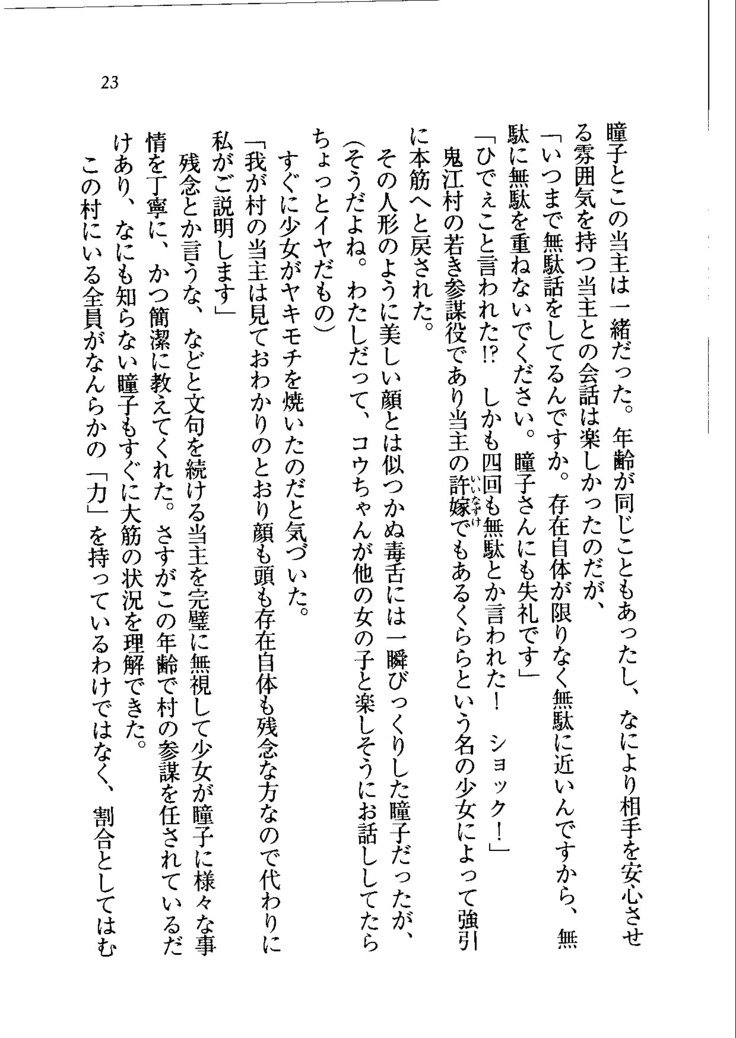 23
瞳子とこの当主は一緒だった。年齢が同じこともあったし、なにより相手を安心させ
る雰囲気を持つ当主との会話は楽しかったのだが、
「いつまで無駄話をしてるんですか。存在自体が限りなく無駄に近いんですから、無
駄に無駄を重ねないでください。瞳子さんにも失礼です」
「ひでぇこと言われた!?　しかも四回も無駄とか言われた！　ショック！」
鬼江村の若き参謀役であり当主の許嫁でもあるくららという名の少女によって強引
いいなずけ
に本筋へと戻された。
その人形のように美しい顔とは似つかぬ毒舌には一瞬びっくりした瞳子だったが、
（そうだよね。わたしだって、コウちゃんが他の女の子と楽しそうにお話ししてたら
ちょっとイヤだもの）
すぐに少女がヤキモチを焼いたのだと気づいた。
「我が村の当主は見ておわかりのとおり顔も頭も存在自体も残念な方なので代わりに
私がご説明します」
残念とか言うな、などと文句を続ける当主を完璧に無視して少女が瞳子に様々な事
情を丁寧に、かつ簡潔に教えてくれた。さすがこの年齢で村の参謀を任されているだ
けあり、なにも知らない瞳子もすぐに大筋の状況を理解できた。
この村にいる全員がなんらかの「力」を持っているわけではなく、割合としてはむ